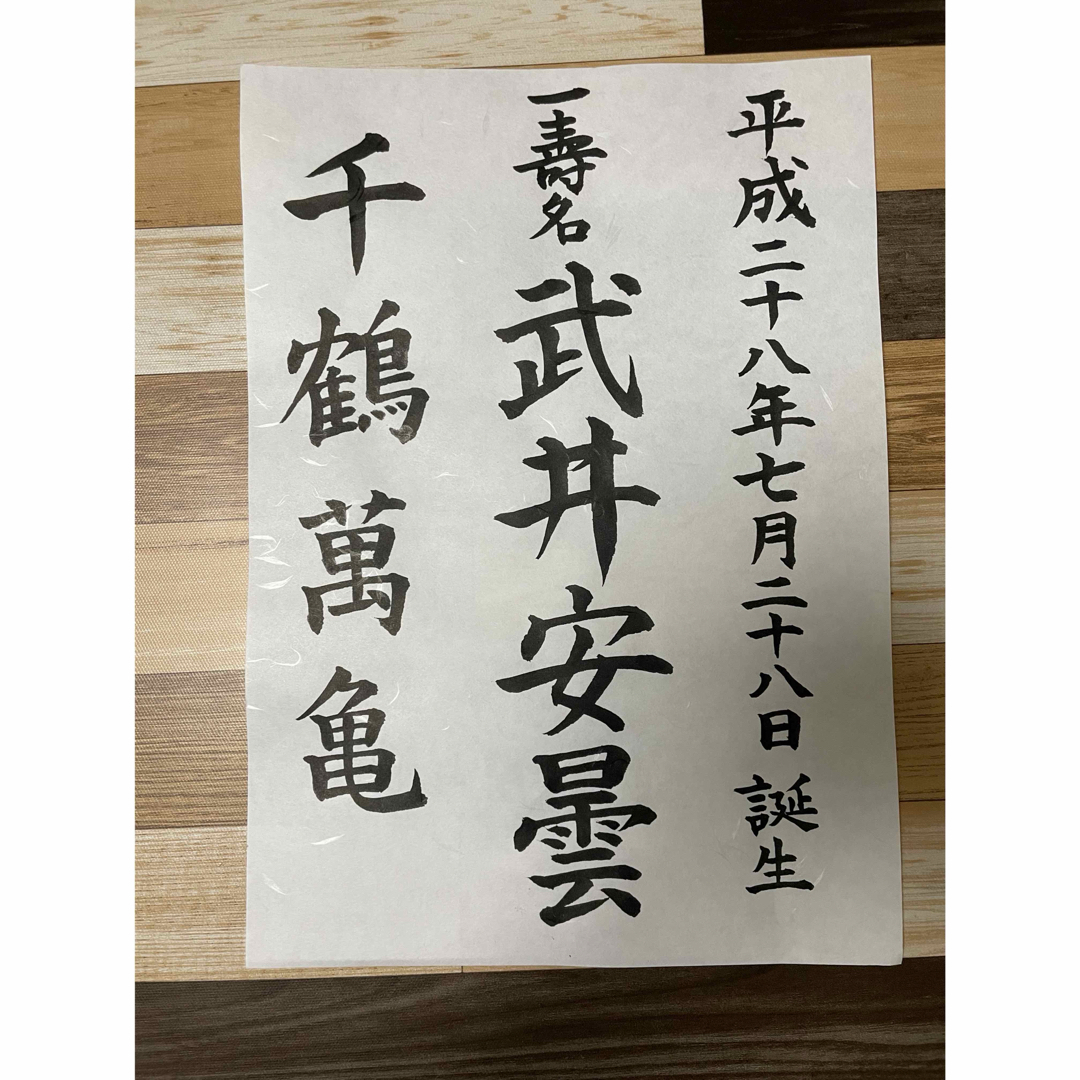 平成二十八年七月二十八日 誕生
一壽名 武井安曇
千鶴萬亀